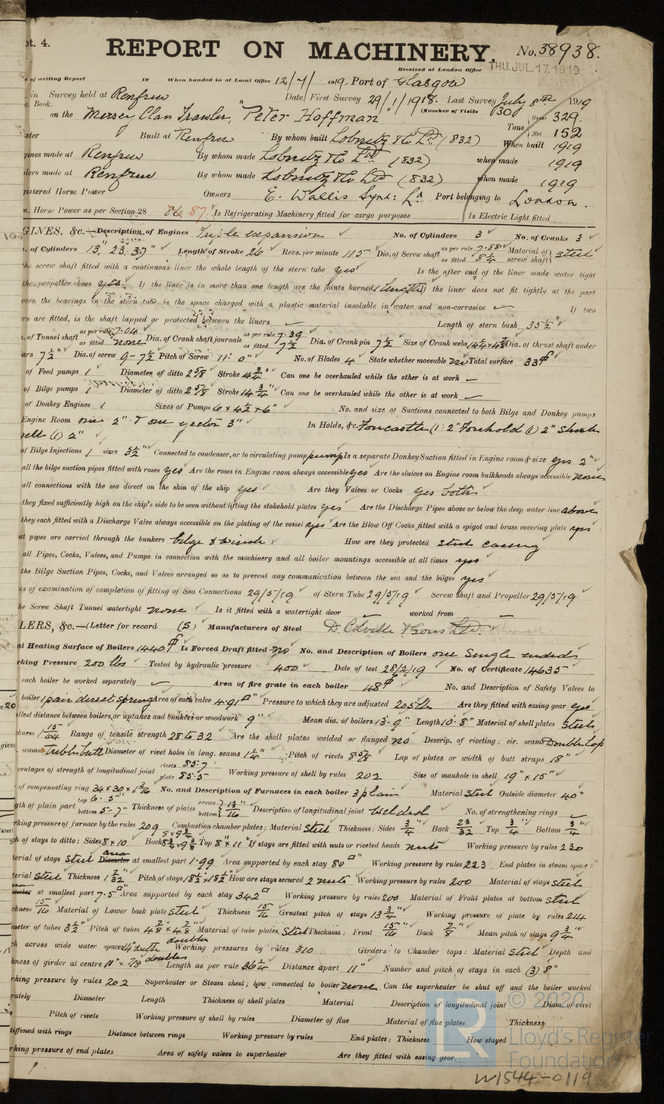 pt. 4.
REPORT ON MACHINERY. No. 38938.
Received at London Office THU. JUL. 17. 1919
of writing Report 19 When handed in at Local Office 12/7/1919. Port of Glasgow
in Survey held at Renfrew Date, First Survey 29/1/1918. Last Survey July 8th 1919
g. Book. (Number of Visits 30)
on the Mersey Class Trawler, "Peter Hoffman Tons Gross 329. Net 152
Built at Renfrew By whom built Lobnitz & Co Ld (832) When built 1919
gines made at Renfrew By whom made Lobnitz & Co Ltd (832) when made 1919
lers made at Renfrew By whom made Lobnitz & Co Ltd (832) when made 1919
gistered Horse Power Owners Port belonging to London.
n. Horse Power as per Section 28 86 87 Is Refrigerating Machinery fitted for cargo purposes Is Electric Light fitted
GINES, &c.—Description of Engines Triple expansion No. of Cylinders 3 No. of Cranks 3
of Cylinders 13" 23. 37" Length of Stroke 26 Revs. per minute 115 Dia. of Screw shaft as per rule 7.88 as fitted Material of screw shaft steel
the screw shaft fitted with a continuous liner the whole length of the stern tube yes Is the after end of the liner made water tight
the propeller boss yes If the liner is in more than one length are the joints burned If the liner does not fit tightly at the part
een the bearings in the stern tube, is the space charged with a plastic material insoluble in water and non-corrosive If two
rs are fitted, is the shaft lapped or protected between the liners Length of stern bush 35½"
of Tunnel shaft as per rule 7.04 as fitted none Dia. of Crank shaft journals as per rule 7.39 as fitted 7½ Dia. of Crank pin 7½ Size of Crank webs Dia. of thrust shaft under
ars 7½" Dia. of screw 9-7½ Pitch of Screw 11' 0" No. of Blades 4 State whether moveable no Total surface 33
of Feed pumps 1 Diameter of ditto 2⅝ Stroke 14¾ Can one be overhauled while the other is at work
of Bilge pumps 1 Diameter of ditto 2⅝ Stroke 14¾" Can one be overhauled while the other is at work
of Donkey Engines 1 Sizes of Pumps 6 x 4½ x 6" No. and size of Suctions connected to both Bilge and Donkey pumps
Engine Room one 2" & one ejector 3" In Holds, &c. Forecastle (1) 2" Forehold (1) 2"
(1) 2"
of Bilge Injections 1 sizes 3½" Connected to condenser, or to circulating pump pump Is a separate Donkey Suction fitted in Engine room & size yes 2"
all the bilge suction pipes fitted with roses yes Are the roses in Engine room always accessible yes Are the sluices on Engine room bulkheads always accessible none
all connections with the sea direct on the skin of the ship yes Are they Valves or Cocks yes both
they fixed sufficiently high on the ship's side to be seen without lifting the stokehold plates yes Are the Discharge Pipes above or below the deep water line above
they each fitted with a Discharge Valve always accessible on the plating of the vessel yes Are the Blow Off Cocks fitted with a spigot and brass covering plate yes
at pipes are carried through the bunkers bilge & winch How are they protected steel casing
all Pipes, Cocks, Valves, and Pumps in connection with the machinery and all boiler mountings accessible at all times yes
the Bilge Suction Pipes, Cocks, and Valves arranged so as to prevent any communication between the sea and the bilges yes
es of examination of completion of fitting of Sea Connections 29/5/19 of Stern Tube 29/5/19 Screw shaft and Propeller 29/5/19
he Screw Shaft Tunnel watertight none Is it fitted with a watertight door worked from
LERS, &c.—(Letter for record (S) Manufacturers of Steel D. Colville & Sons Ltd.
al Heating Surface of Boilers 1440 Is Forced Draft fitted no No. and Description of Boilers one Single ended
rking Pressure 200 lbs Tested by hydraulic pressure 400 Date of test 28/2/19 No. of Certificate 14635
each boiler be worked separately Area of fire grate in each boiler 48 No. and Description of Safety Valves to
boiler 1 pair direct spring Area of each valve 4.91 Pressure to which they are adjusted 205 lbs Are they fitted with easing gear yes
llest distance between boilers or uptakes and bunkers or woodwork 9" Mean dia. of boilers 13'-9" Length 10'-8" Material of shell plates Steel
kness Range of tensile strength 28 to 32 Are the shell plates welded or flanged no Descrip. of riveting: cir. seams Double Lap
seams Treble butt Diameter of rivet holes in long. seams 1¼ Pitch of rivets 8⅝ Lap of plates or width of butt straps 18"
centages of strength of longitudinal joint rivets 85.7 plate 85.5 Working pressure of shell by rules 202 Size of manhole in shell 19" x 15"
of compensating ring No. and Description of Furnaces in each boiler 3 plain Material Steel Outside diameter 40"
gth of plain part top 6'-5" bottom 5'-7" Thickness of plates crown bottom 13/16" Description of longitudinal joint Welded No. of strengthening rings
rking pressure of furnace by the rules 209 Combustion chamber plates: Material Steel Thickness: Sides ¾ Back 23/32 Top ¾ Bottom ¾
h of stays to ditto: Sides 8 x 10 Back Top 8" x 11" If stays are fitted with nuts or riveted heads nuts Working pressure by rules 230
terial of stays Steel area Diameter at smallest part 1.99 Area supported by each stay 80 Working pressure by rules 223 End plates in steam space:
terial Steel Thickness 1 3/32 Pitch of stays How are stays secured 2 nuts Working pressure by rules 200 Material of stays steel
at smallest part 7.5 Area supported by each stay 342 Working pressure by rules 200 Material of Front plates at bottom steel
ckness 15/16 Material of Lower back plate steel Thickness 15/16 Greatest pitch of stays 13¾" Working pressure of plate by rules 214
meter of tubes 3½ Pitch of tubes 4⅞ x 4⅞ Material of tube plates Steel Thickness: Front 15/16 Back ⅞ Mean pitch of stays 9¾
h across wide water spaces Working pressures by rules 310 Girders to Chamber tops: Material Steel Depth and
ness of girder at centre 11" x ⅞ doubles Length as per rule Distance apart 11" Number and pitch of stays in each (3) 8"
rking pressure by rules 202 Superheater or Steam chest; how connected to boiler none Can the superheater be shut off and the boiler worked
rately Diameter Length Thickness of shell plates Material Description of longitudinal joint Diam. of rivet
Pitch of rivets Working pressure of shell by rules Diameter of flue Material of flue plates Thickness
iffened with rings Distance between rings Working pressure by rules End plates: Thickness How stayed
rking pressure of end plates Area of safety valves to superheater Are they fitted with easing gear
© 2020
Lloyd's Register
Foundation
W1544-0119